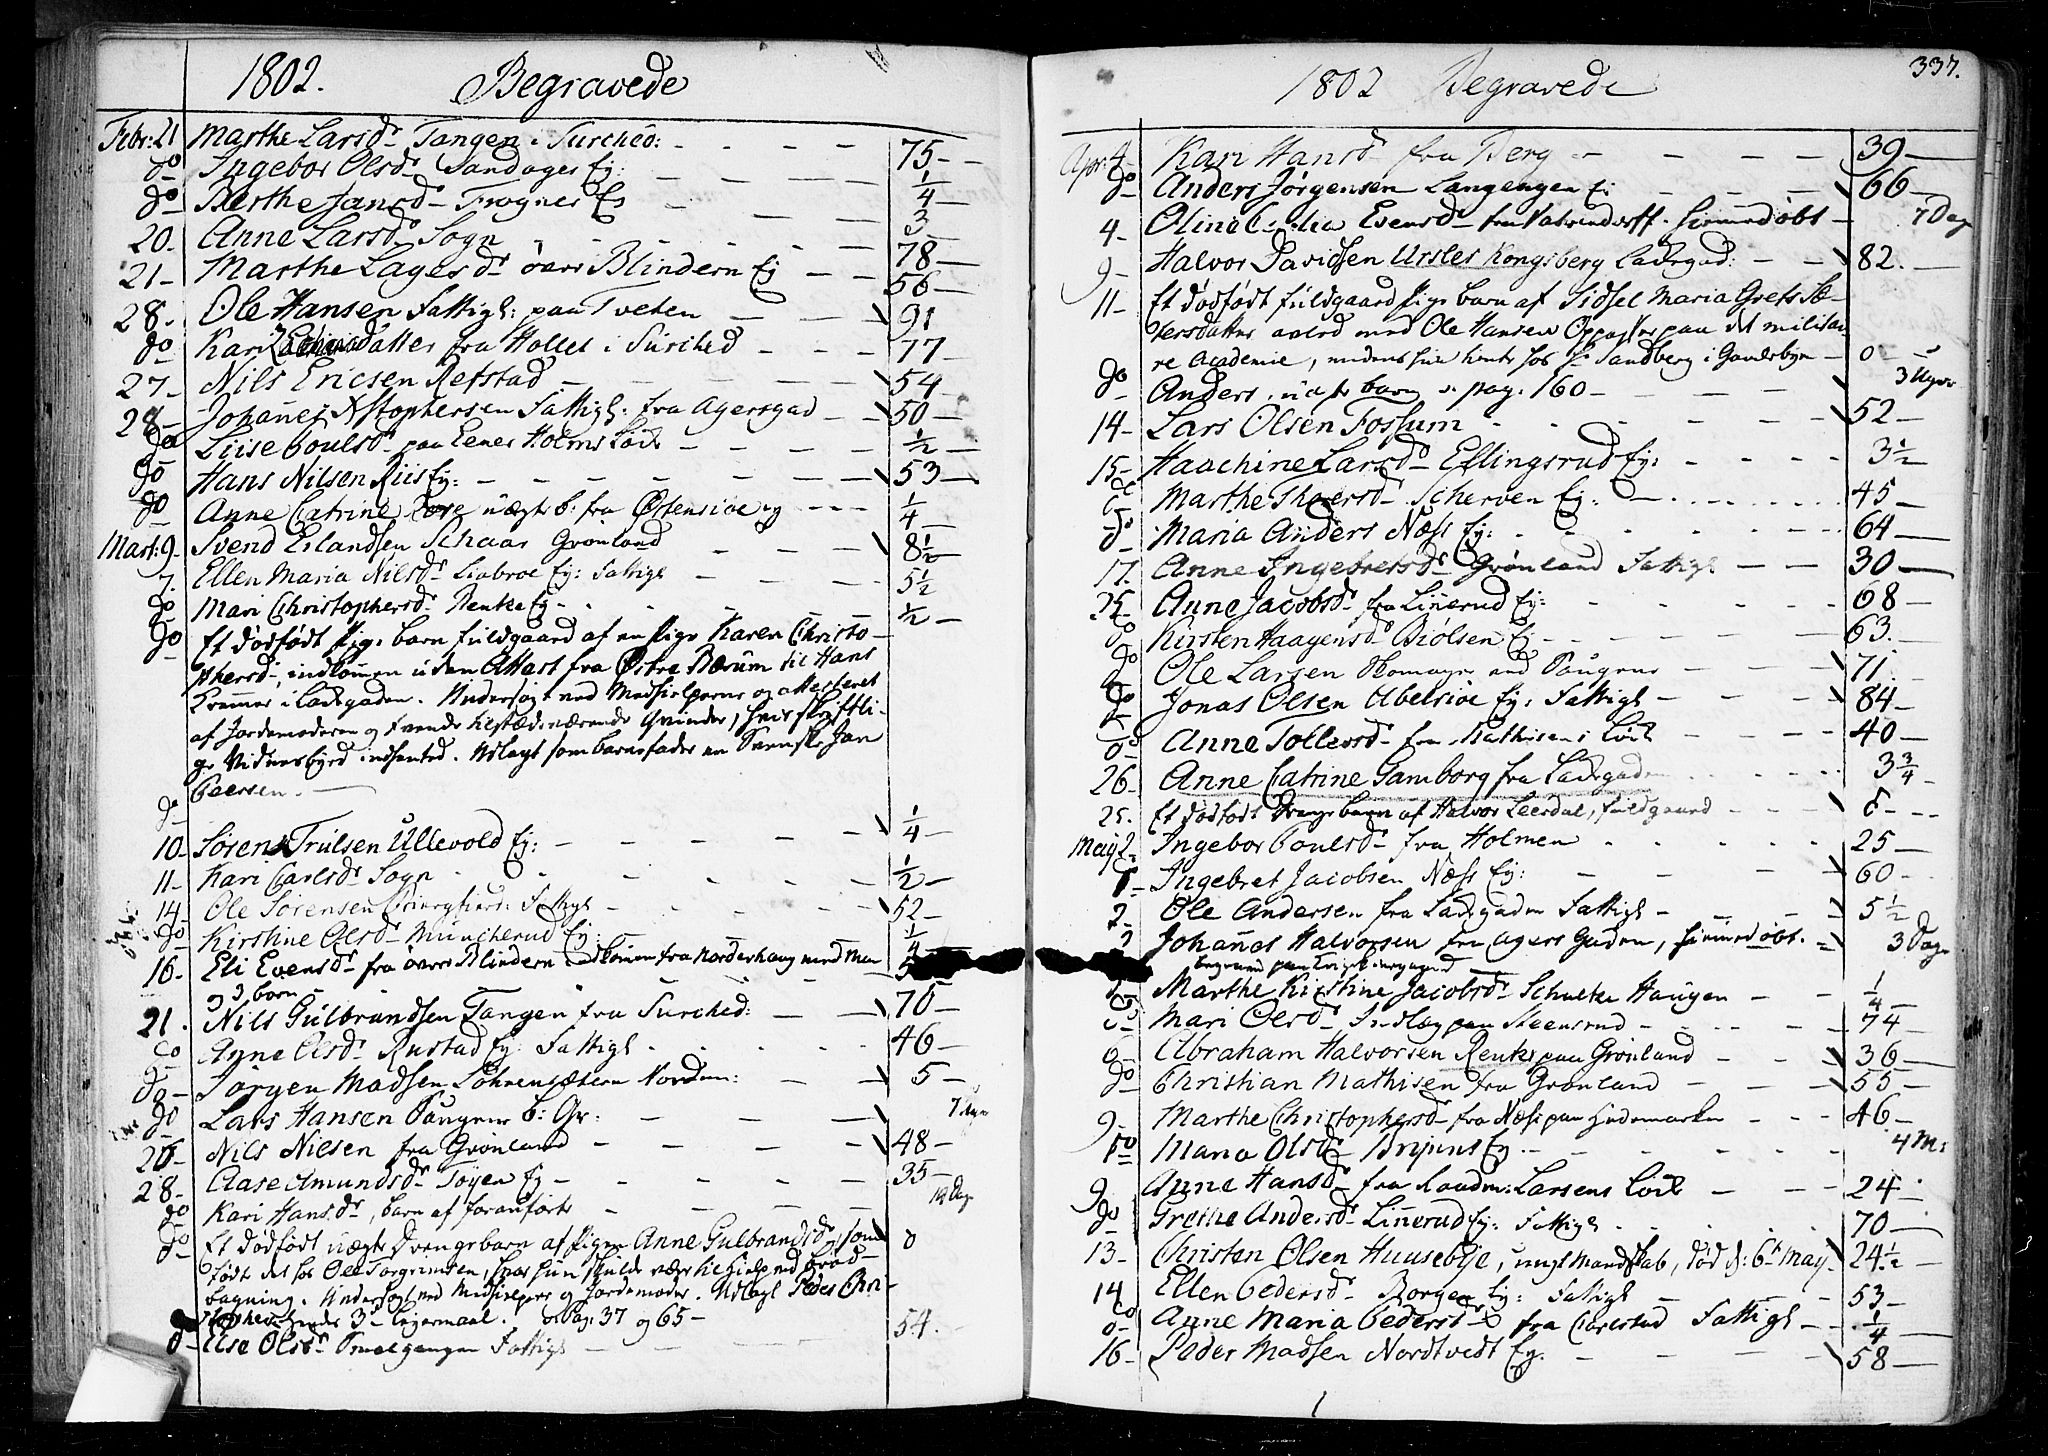 1802. Begravede
Febr: 21 Marthe Larsd. Tangen i Surched: 75
do Ingebor Olsd. Sandager Ej: 1/4
do Berthe Jansd. Frogner Ej 3
20. Anne Larsd. Sogn 78
21 Marthe Lagesd. øvre Blindern Ej 56
28. Ole Hansen Fattigl: paa Tveten 91
do Kari datter fra Hollet i Surched 77
27 Nils Ericsen Refstad 54
28 Johannes Xstophersen Fattigl: fra Agersgad 50
do Liise Poulsd. paa Holms Løck 1/2
do Hans Nilsen Riis Ej: 53
do Anne Catrine uægte b: fra Østensiøe ej 1/4
Mart: 9 Svend Erlandsen Schaar Grønland 8 1/2
7. Ellen Maria Nilsd. Liabroe Ej: Fattigl 5 1/2
do Mari Christophersd. Renke Ej 1/2
do Et dødfødt Pige barn fuldgaard af en Pige Karen Christo-
phersd., indkommen uden Attest fra Østre Bærum til Hans
Kremmer i Ladegaden. Undersøgt ved Medhielperne og attesteret
af Jordemoderen og tvende tilstædeværende Qvinder, hvis skriftli-
ge Vidnesbyrd indhented. Udlagt som barnefader en Svensk Jan
Peersen.
do
10 Søren Trulsen Ullevold Ej: 1/4
11 Kari Carlsd. Sogn 1/2
14 Ole Sørensen Fattigl 52
do Kirstine Olsd. Muncherud Ej 1/4
16 Eli Evensd. fra øvre Blindern indkommen fra Norderhaug med Man
og 3 børn
21. Nils Gulbrandsen Tangen fra Surched: 70
do Anne Olsd. Rustad Ej: Fattigl 46
do Jørgen Madsen Søhrensætern Nordm: 5
do Lars Hansen Saugene b: Gr: 7 Uger
26 Nils Nilsen fra Grønland 48
28 Aase Amundsd. Tøyen Ej 35
do Kari Hansd., barn af 14 Dage
do Et dødfødt uægte Drengebarn af Pigen Anne Gulbrandsd., som 0
født det hos Ole Torgrimsen, hvor hun skulde være til hielp ved brød-
bagning. Undersøgt ved Medhielpere og Jordemoder. Udlagt Peder Chri-
stophersen hendes 3die Leiermaal. Pag: 37 og 65
do Else Olsd. Fattigl 54.
337.
1802 Begravede
Apr: 4 Kari Hansd. fra Berg 39
do Anders Jørgensen Langengen Ej 66
4 Olina Evensd. fra hiemmedøbt 7 Dag
9 Halvor Davidsen Ursler Kongsberg Ladegad: 82.
11 Et dødfødt fuldgaard Pige barn af Sidsel Maria Grets Si-
versdatter avled med Ole Hansen Oppasser paa det militai-
re Academie, medens hun tiente hos Hr. Sandberg i Gamlebyen 0
do Anders, uægte barn v. pag: 160 3 Uger
14 Lars Olsen Fossum 52
15 Haachine Larsd. Eflingsrud Ej: 3 1/2
do Marthe Thoersd. Scherven Ej: 45
do Maria Anders Næss Ej: 64
17. Anne Ingebretsd. Grønland Fattigl 30
25 Anne Jacobsd. fra Linerud Ej: 68
do Kirsten Haagensd. Biølsen Ej 63.
do Ole Larsen Skomager ved Saugene 71.
do Jonas Olsen Abelsiøe Ej: Fattigl 84
do Anne Tollersd. fra Mathisens Løck 40
26 Anne Catrine Tamborg fra Ladegaden 3 3/4
25. Et dødfødt Drenge barn af Halvor Leerdal, fuldgaard
May 2 Ingebor Poulsd. fra Holmen 25
Ingebret Jacobsen Næss Ej: 60
2 Ole Andersen fra Ladegaden Fattigl 5 1/2
Johannes Halvorsen fra Agers Gaden, hiemmedøbt. 3 Dage
Marthe Kirstine Jacobsd. Schulke Haugen 1/4
Mari Olsd. Indlæg paa Steensrud 74
Abraham Halvorsen Renke paa Grønland 36
do Christian Mathisen fra Grønland 55
9 Marthe Christophersd. fra Næss paa Hedemarken 46
do Maria Olsd. Ej 4 M:
9 Anne Hansd. fra Raadm: Larsens Løck 24
do Grethe Andersd. Linerud Ej: Fattigl 70
13 Christen Olsen Huusebye, ungt Mandskab, død d: 6te May 24 1/2
14 Ellen Pedersd. Borgen Ej: Fattigl 53
do Anne Maria Pedersd. fra Carlstad Fattigl 1/4
16 Peder Madsen Nordtvedt Ej. 58